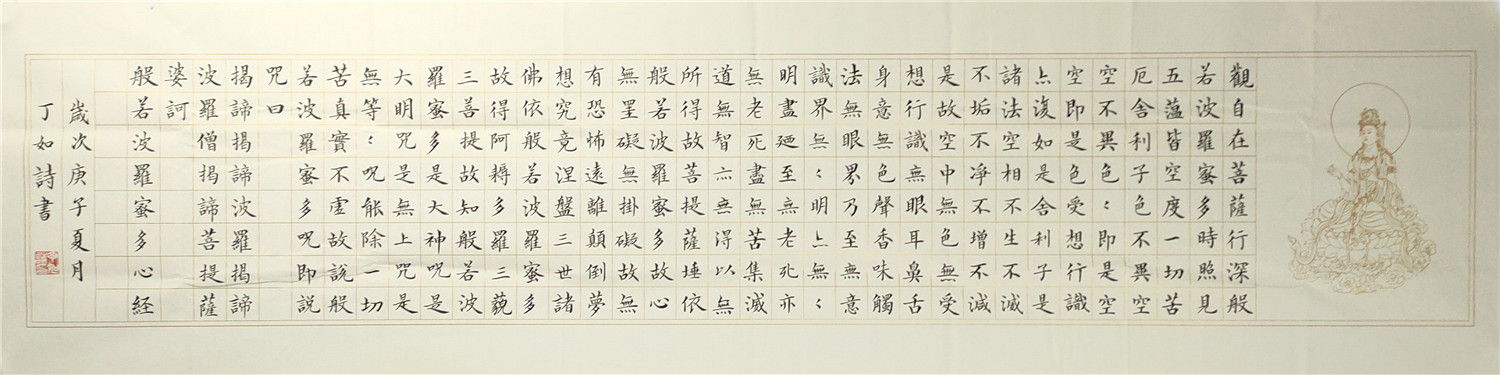 觀自在菩薩行深般
若波羅蜜多時照見
五蕰皆空度一切苦
厄舍利子色不異空
空不異色〻即是空
空即是色受想行識
亦復如是舍利子是
諸法空相不生不滅
不垢不淨不增不減
是故空中無色無受
想行識無眼耳鼻舌
身意無色聲香味觸
法無眼界乃至無意
識界無〻明亦無〻
明盡廼至無老死亦
無老死盡無苦集滅
道無智亦無得以無
所得故菩提薩埵依
般若波羅蜜多故心
無罣礙無掛礙故無
有恐怖遠離顛倒夢
想究竟涅盤三世諸
佛依般若波羅蜜多
故得阿耨多羅三藐
三善提故知般若波
羅蜜多是大神呪是
大明咒是無上咒是
無等〻呪能除一切
苦真實不虛故說般
若波羅蜜多呪即説
咒曰
揭諦揭諦波羅揭諦
波羅僧揭諦菩提薩
婆訶
般若波羅蜜多心経
歲次庚子夏月
丁如詩書